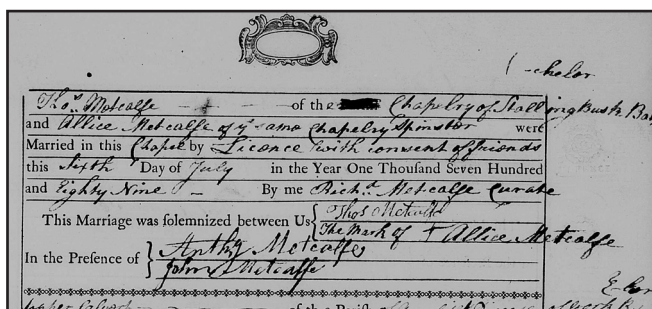 -chelor
Thos. Metcalfe of the Chapelry of Stallingbusk Ba
and Allice Metcalfe of ye same Chapelry Spinster were
Married in this Chapel by Licence with consent of friends
this Sixth Day of July in the Year One Thousand Seven Hundred
and Eighty Nine By me Richd. Metcalfe Curate
This Marriage was solemnized between Us { Thos Metcalfe
The Mark of + Allice Metcalfe
In the Presence of { Anthy Metcalfe
John Metcalfe
of the Parish